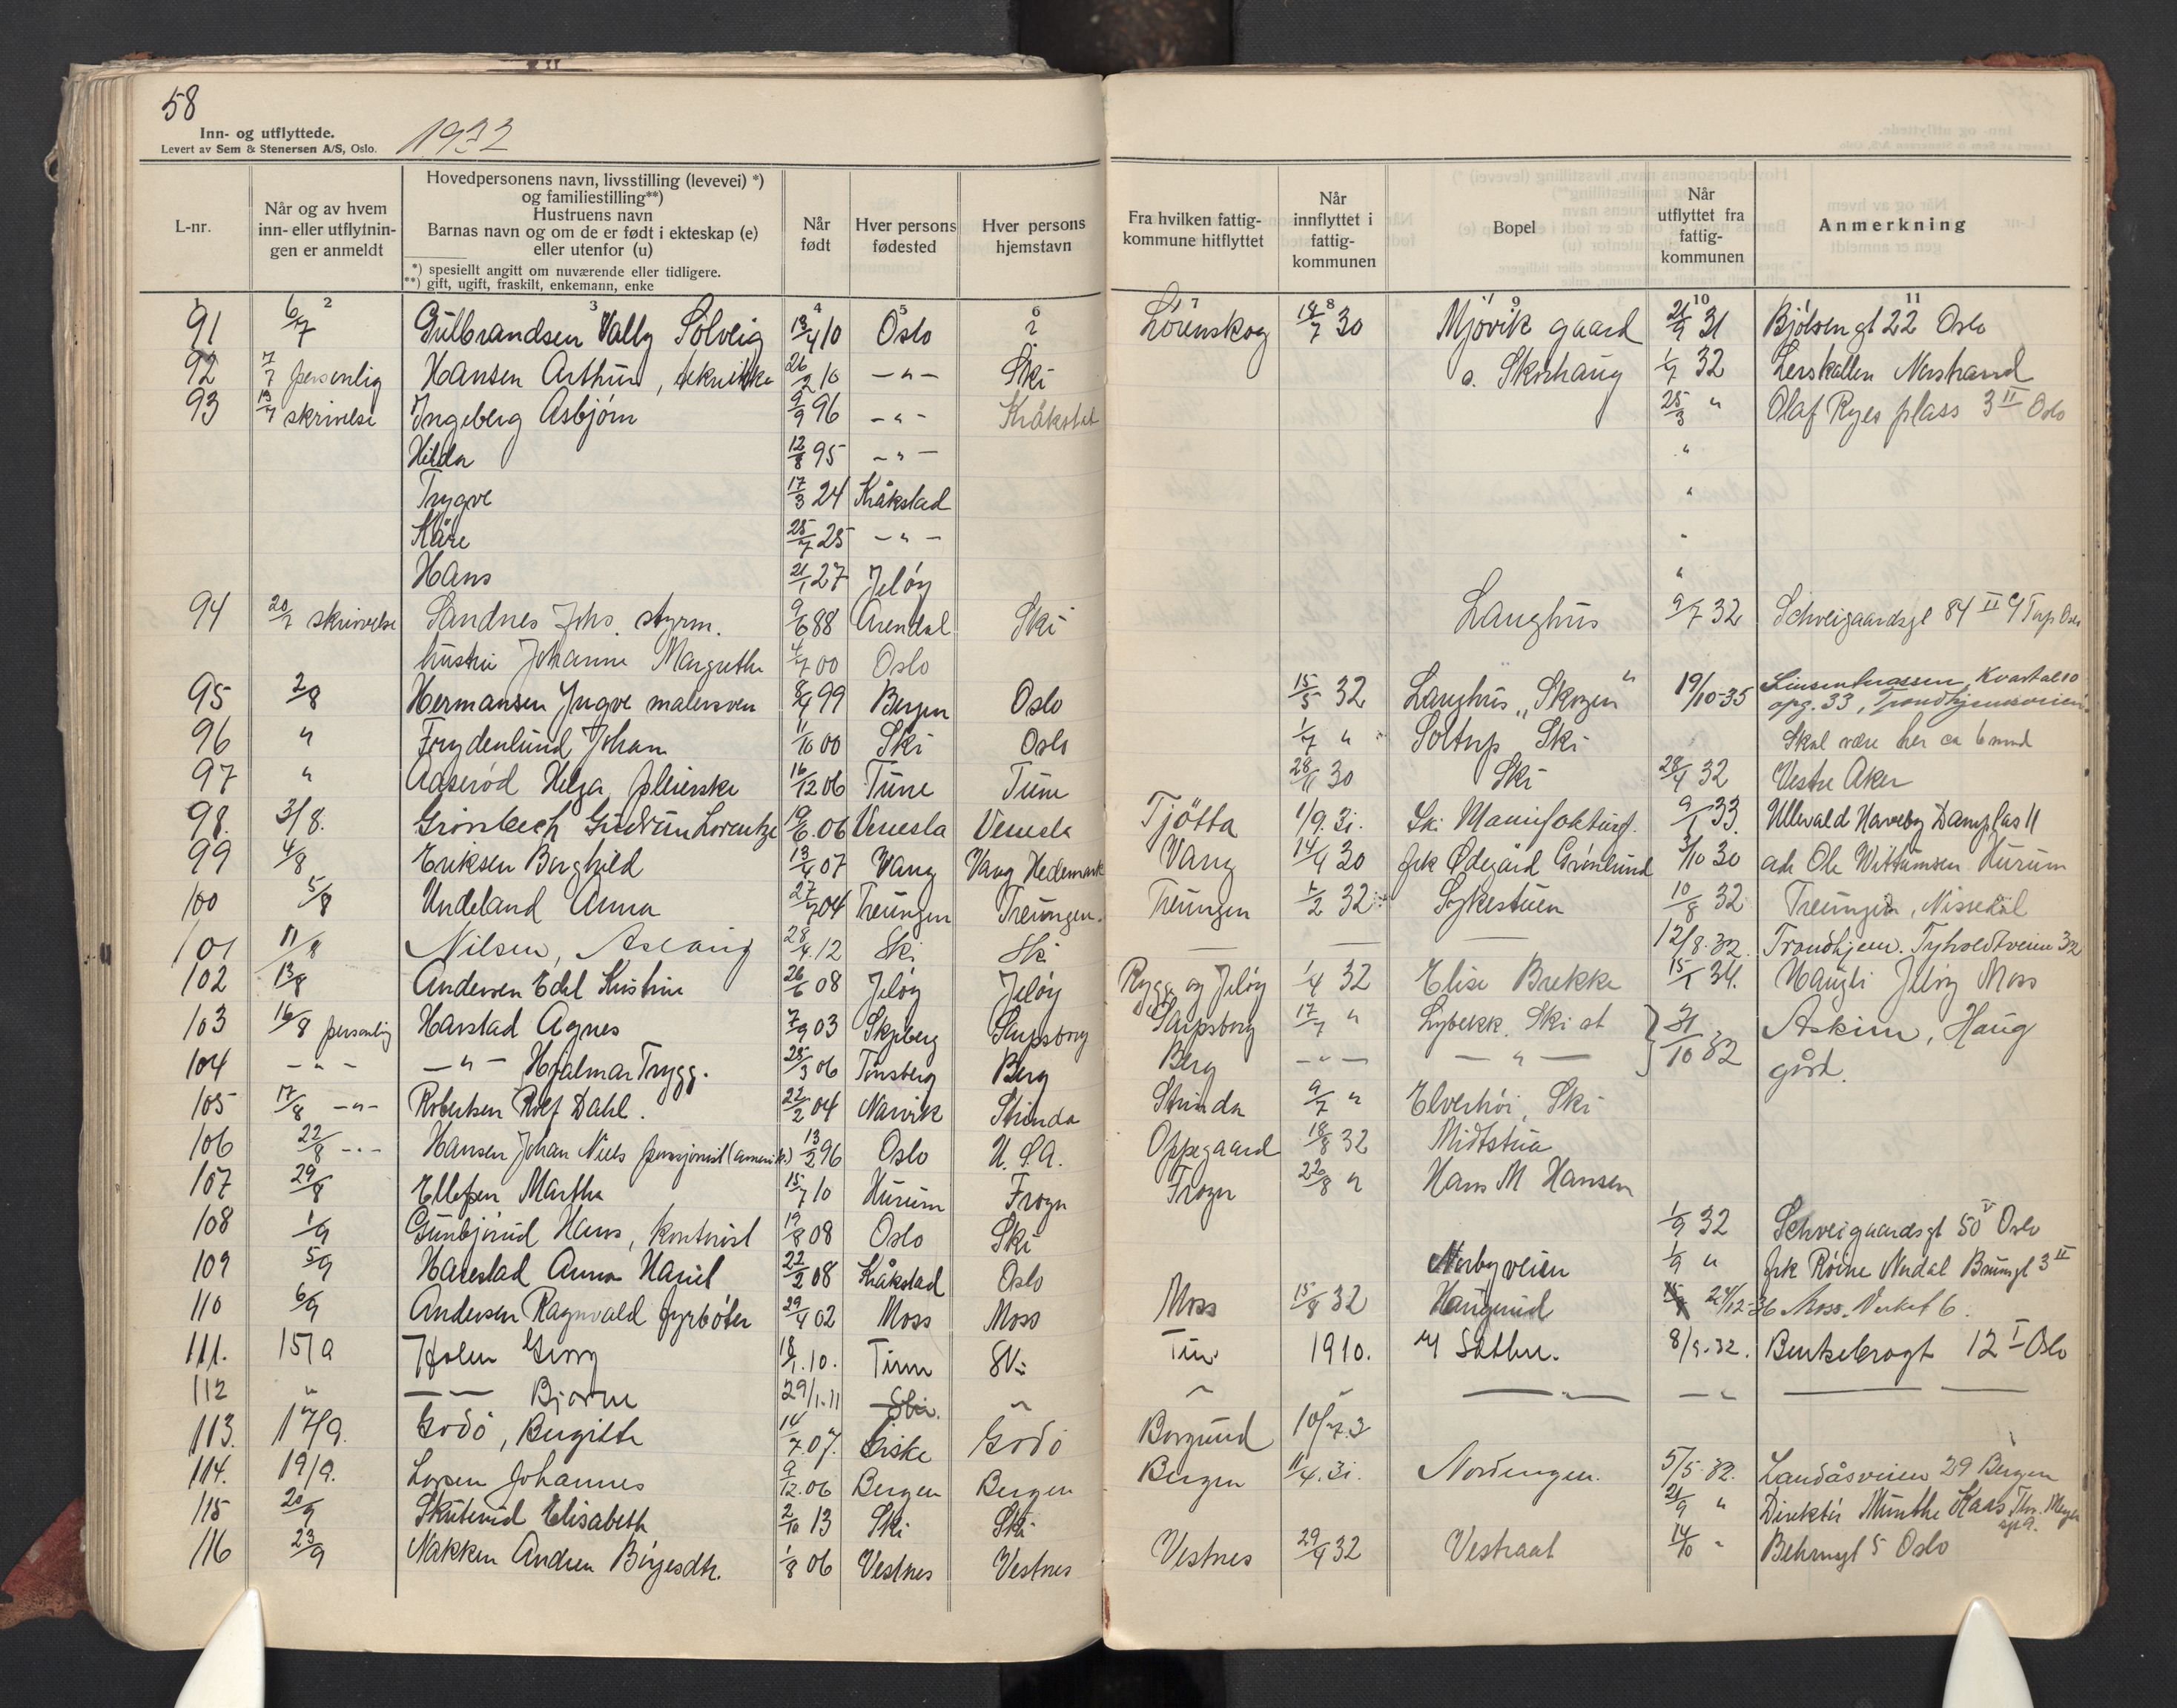 58
Inn- og utflyttede.
Levert av Sem & Stenersen A/S, Oslo.
1932
L-nr.
Når og av hvem inn- eller utflytnin- gen er anmeldt
Hovedpersonens navn, livsstilling (levevei) *) og familiestilling**)
Hustruens navn
Barnas navn og om de er født i ekteskap (e) eller utenfor (u)
*) spesiellt angitt om nuværende eller tidligere.
**) gift, ugift, fraskilt, enkemann, enke
Når født
Hver persons fødested
Hver persons hjemstavn
Fra hvilken fattig- kommune hitflyttet
Når innflyttet i fattig- kommunen
Bopel
Når utflyttet fra fattig- kommunen
Anmerkning
2 3 4 5 6 7 8 9 10 11
91 6/7 Gulbrandsen Vally Solveig 13/4 10 Oslo ? Lörenskog 18/7 30 Mjövik gaard 21/9 31 Bjölsengt 22 Oslo
92 7/7 personlig Hansen Arthur, 26/2 10 -"- Ski 1/7 32
93 13/7 skrivelse Ingeberg Asbjörn 9/9 96 -"- Kråkstad 25/3 " Olaf Ryes plass 3 II Oslo
Hilda 12/8 95 -"- "
Trygve 17/3 24 Kråkstad "
Kåre 25/7 25 -"- "
Hans 21/1 27 Jelöy "
94 20/7 skrivelse Sandnes Johs. styrm. 9/6 88 Arendal Ski Langhus 9/7 32 Schweigaardsgt 84 II
hustru Johanne Margrethe 4/7 00 Oslo
95 2/8 Hermansen Yngve malersven 8/4 99 Bergen Oslo 15/5 32 Langhus „Skogen" 19/10-35 Kvartal 10 opg. 33, Trondhjemsveien
96 " Frydenlund Johan 1/10 00 Ski Oslo 1/7 " Ski Skal være her ca 6 mnd
97 " Aaseröd Helga pleierske 16/12 06 Tune Tune 28/11 30 Ski 28/4 32 Vestre Aker
98. 3/8. Grönbech Gudrun Lorentze 19/6. 06 Venesla Venesla Tjötta 1/9. 31. Ski Manufakturf. 9/1 33. Ullevald Haveby Damplas 11
99 4/8 Eriksen Borghild 13/4 07 Vang Vang Hedemark Vang 14/4 30 frk Ødegård Grönlund 3/10 30 Hurum
100 5/8 Undeland Anna 27/7 04 Treungen Treungen. Treungen 1/2 32 Sykestuen 10/8 32 Treungen, Nissedal
101 11/8 Nilsen, Aslaug 28/4. 12 Ski Ski — — — 12/8. 32. Trondhjem. Tyholdtveien 32
102 13/8 Andersen Edel Kristine 26/6 08 Jelöy Jelöy Rygge og Jelöy 1/4 32 Elise Brekke 15/1 34. Haugli Jelöy Moss
103 16/8 personlig Harstad Agnes 7/9 03 Skjeberg Sarpsborg Sarpsborg 17/7 " Lybekk Ski st 31/10 32 Askim, Haug gård.
104 -"- -"- Hjalmar Trygg. 25/3 06 Tønsberg Berg Berg -"- -"-
105 17/8 -"- Robertsen Rolf Dahl. 22/2 04 Narvik Strinda Strinda 9/7 " Elverhöi, Ski
106 22/8 -"- Hansen Johan Niels pensjonist 13/2 96 Oslo U.S.A. Oppegaard 18/8 32 Midtstua
107 29/8 Ellefsen Martha 15/7 10 Hurum Frogn Frogn 22/8 " Hans M Hansen
108 1/9 Gunbjörud Hans, kontorist 19/8 08 Oslo Ski 1/9 32 Schweigaardsgt 50 V Oslo
109 5/9 Harestad Anna 22/2 08 Kråkstad Oslo Nerbyveien 1/9 "
110 6/9 Andersen Ragnvald fyrböter 29/4 02 Moss Moss Moss 15/8 32 Haugerud 24/12-36 Moss. Verket 6.
111. 15/9 Holen Georg 18/1. 10. Tinn Ski Tinn 1910. 8/9-32. Bentsebrogt 12 I Oslo
112 " — Bjarne 29/1-11 " " " — " — — " —
113. 17/9. Godö, Bergitte 14/7. 07. Giske Godö Borgund
114. 19/9. Larsen Johannes 9/12. 06 Bergen Bergen Bergen 11/4. 31. Nordengen. 5/5-32. Landåsveien 29 Bergen
115 20/9 Skuterud Elisabeth 2/10 13 Ski Ski 21/9 " Direktör Munthe Kaas
116 23/9 Nakken Andrea Börgesdtr. 1/8 06 Vestnes Vestnes Vestnes 29/4 32 Vestraat 14/10 " Behrnsgt 5 Oslo